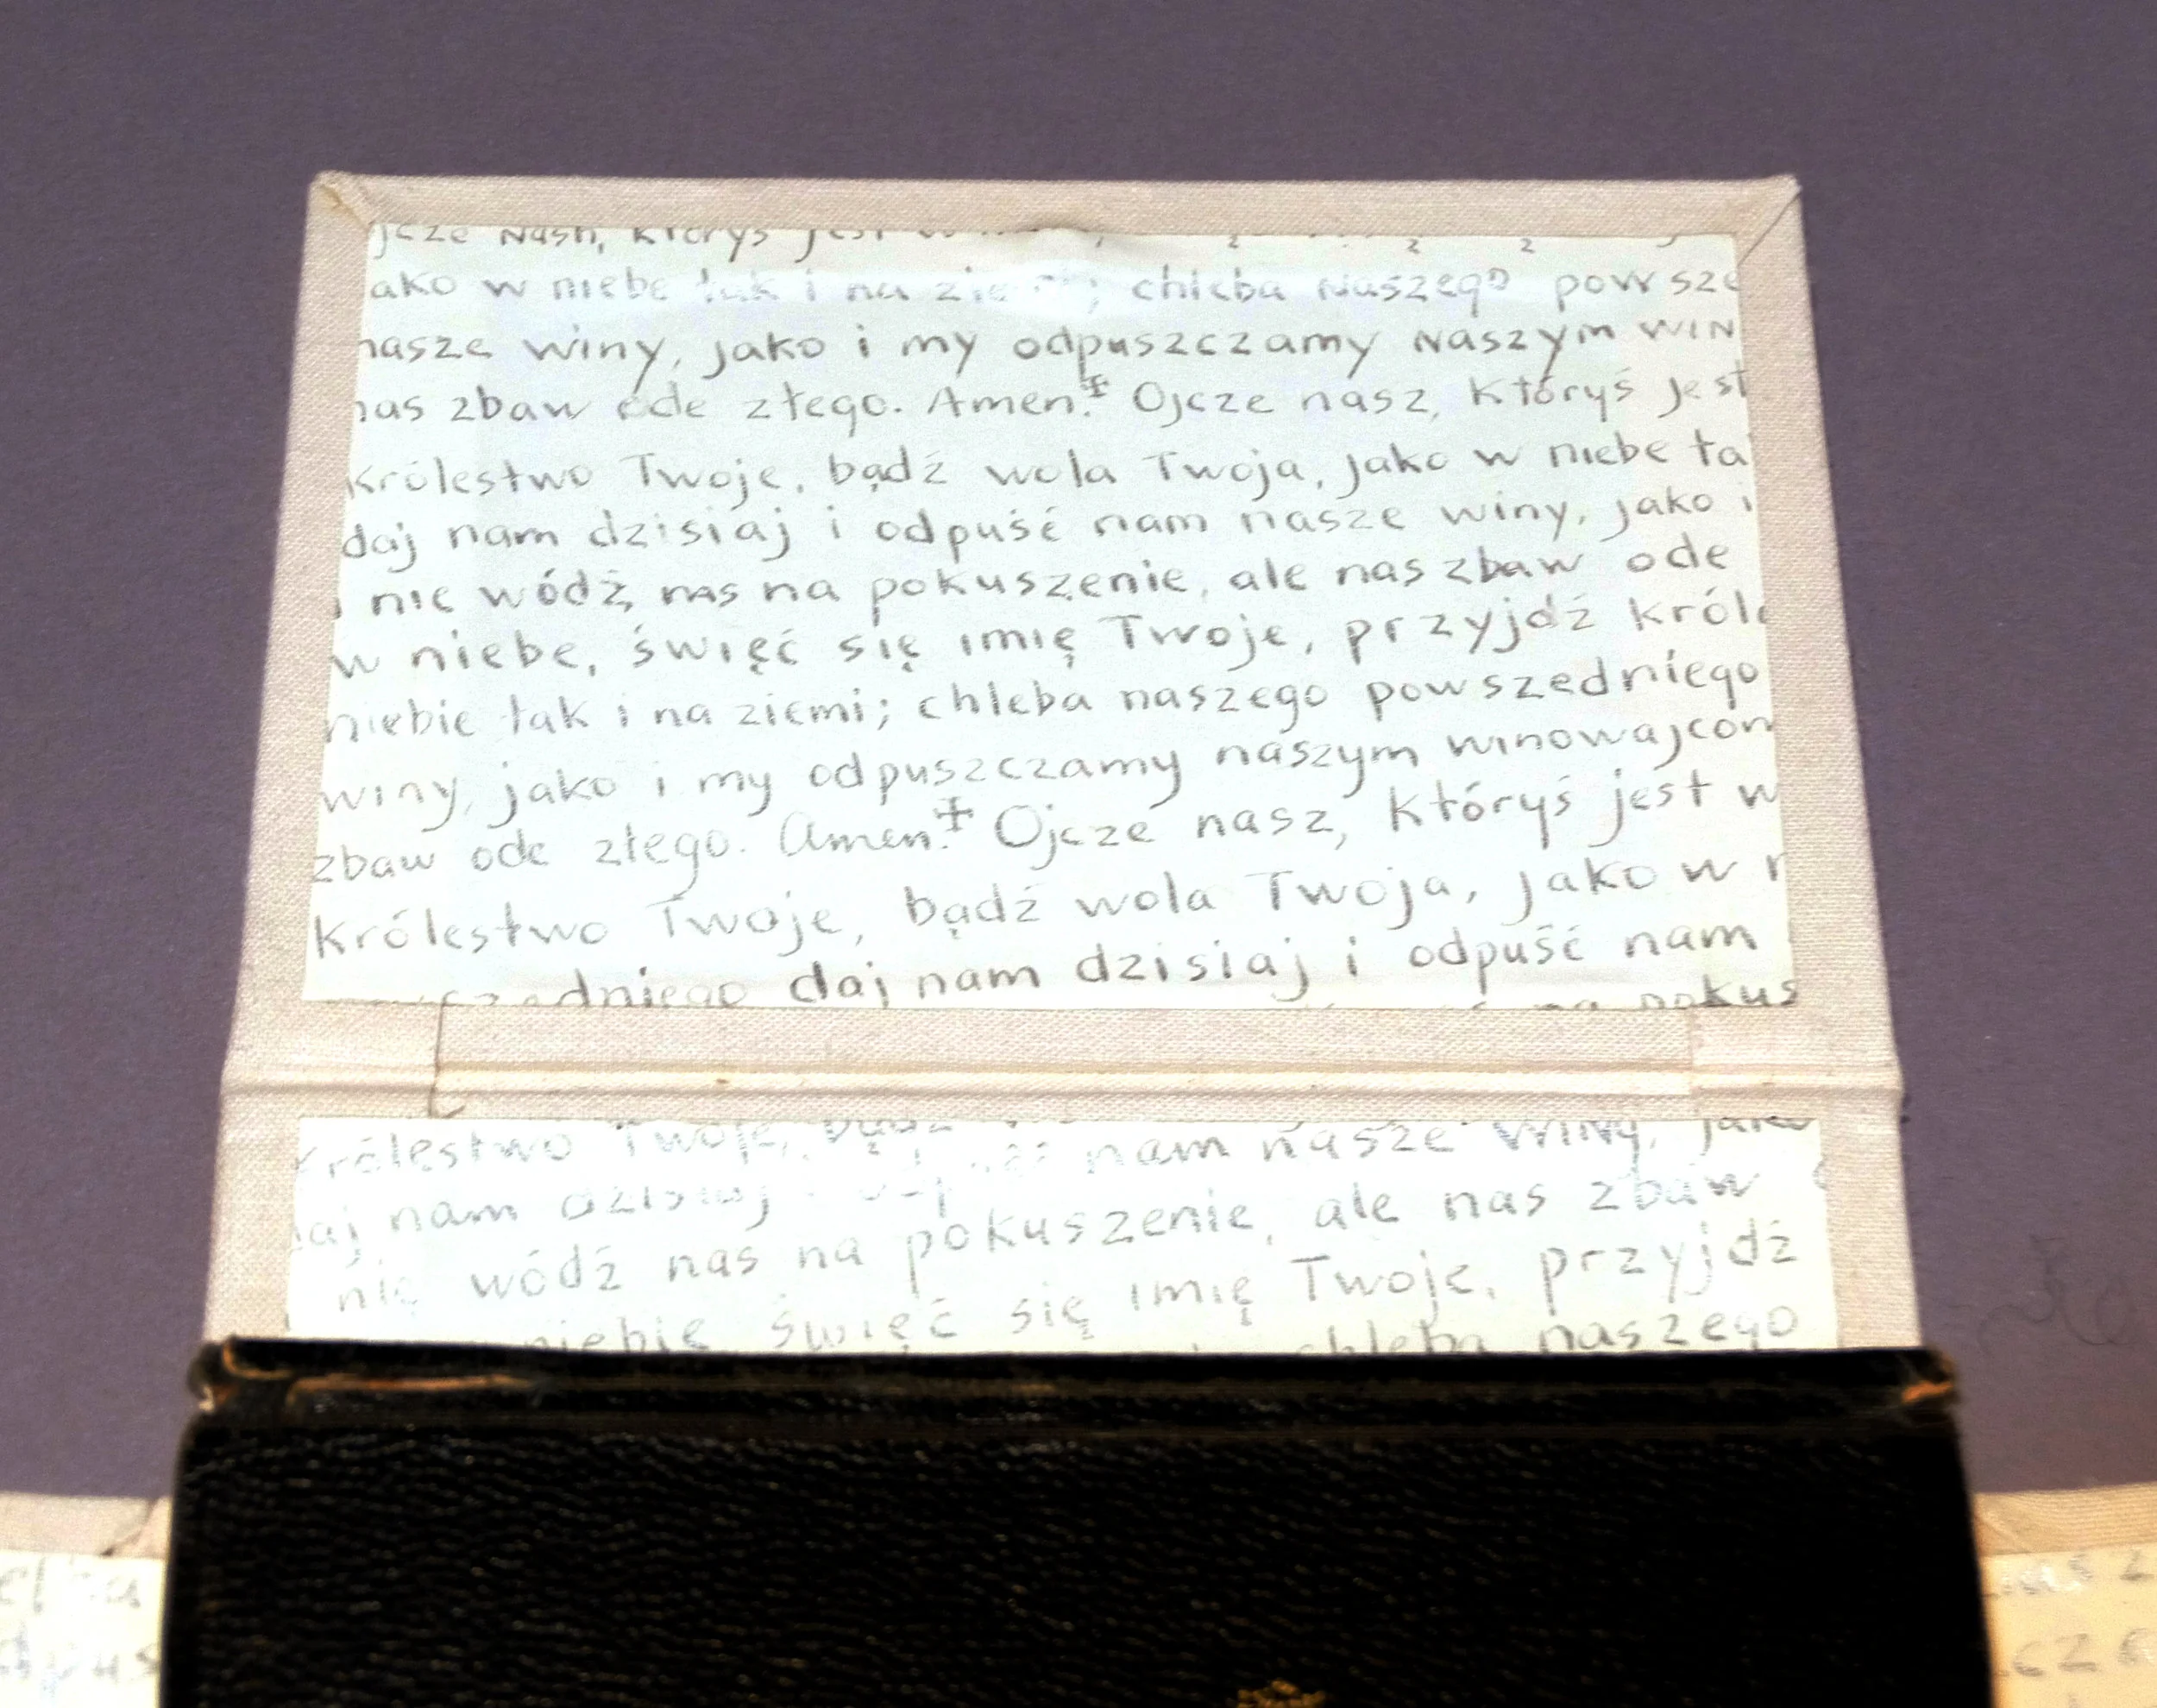 jcze Nasz, któryś jest w
ako w niebe tak i na chleba Naszego powsze
nasze winy, jako i my odpuszczamy Naszym WIN
nas zbaw ode złego. Amen. ‡ Ojcze nasz, któryś jest
Królestwo Twoje, bądź wola Twoja, jako w niebe ta
daj nam dzisiaj i odpuść nam nasze winy, jako i
i nie wódź nas na pokuszenie, ale nas zbaw ode
w niebe, święć się imię Twoje, przyjdź króle
niebie tak i na ziemi; chleba naszego powszedniego
winy, jako i my odpuszczamy naszym winowajcom
zbaw ode złego. Amen. ‡ Ojcze nasz, któryś jest w
Królestwo Twoje, bądź wola Twoja, jako w n
dniego daj nam dzisiaj i odpuść nam
na pokus
Królestwo Twoje, nam nasze winy, jako
aj nam dzisiaj
nie wódź nas na pokuszenie, ale nas zbaw
niebie święć się imię Twoje, przyjdź
chleba naszego